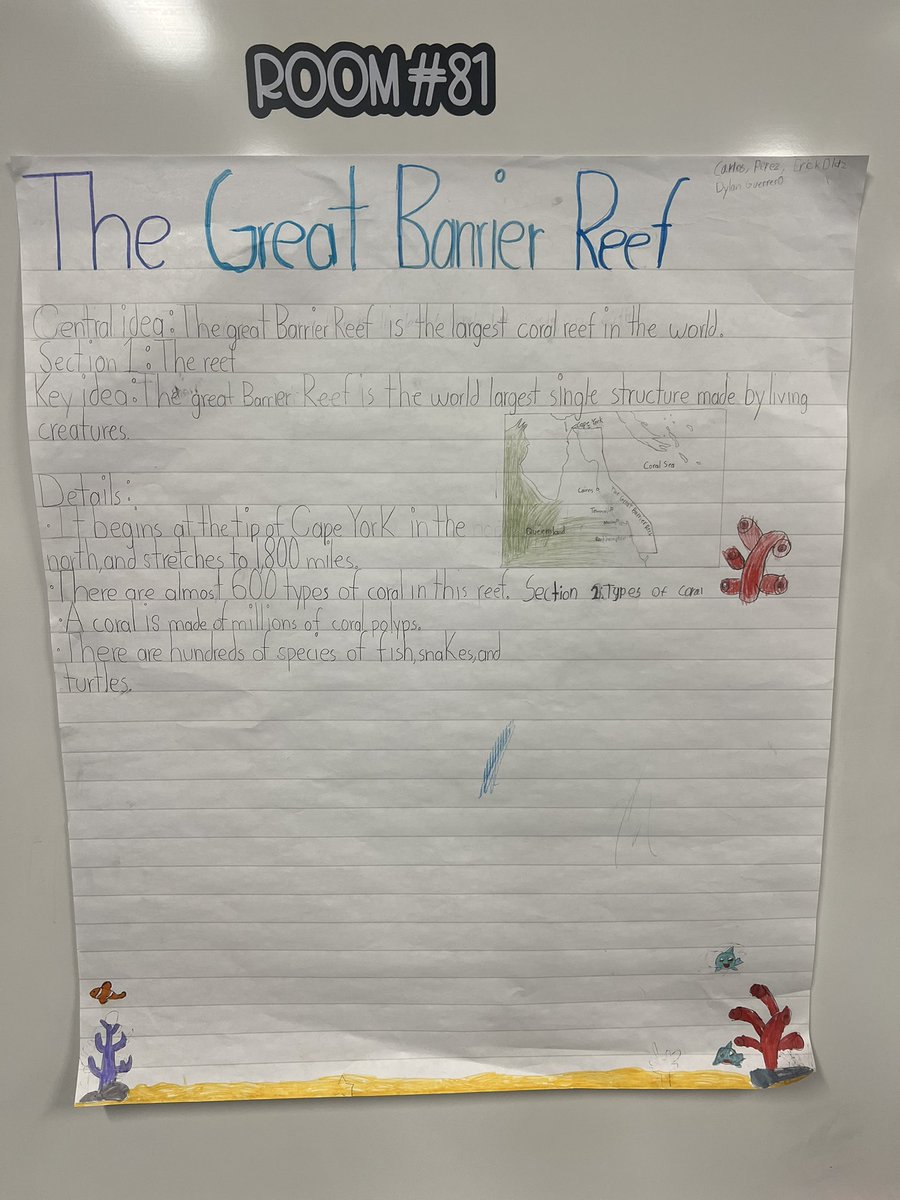 ROOM #81
Carlos, Perez, Erek Diaz
Dylan Guerrero
The Great Barrier Reef
Central idea: The great Barrier Reef is the largest coral reef in the world.
Section 1: The reef
Key idea: The great Barrier Reef is the world largest single structure made by living
creatures.
Cape York
Coral Sea
Cairns
The Great Barrier Reef
Queensland
Details:
· It begins at the tip of Cape York in the
north, and stretches to 1,800 miles.
· There are almost 600 types of coral in this reef. Section 2: Types of coral
· A coral is made of millions of coral polyps.
· There are hundreds of species of fish, snakes, and
turtles.